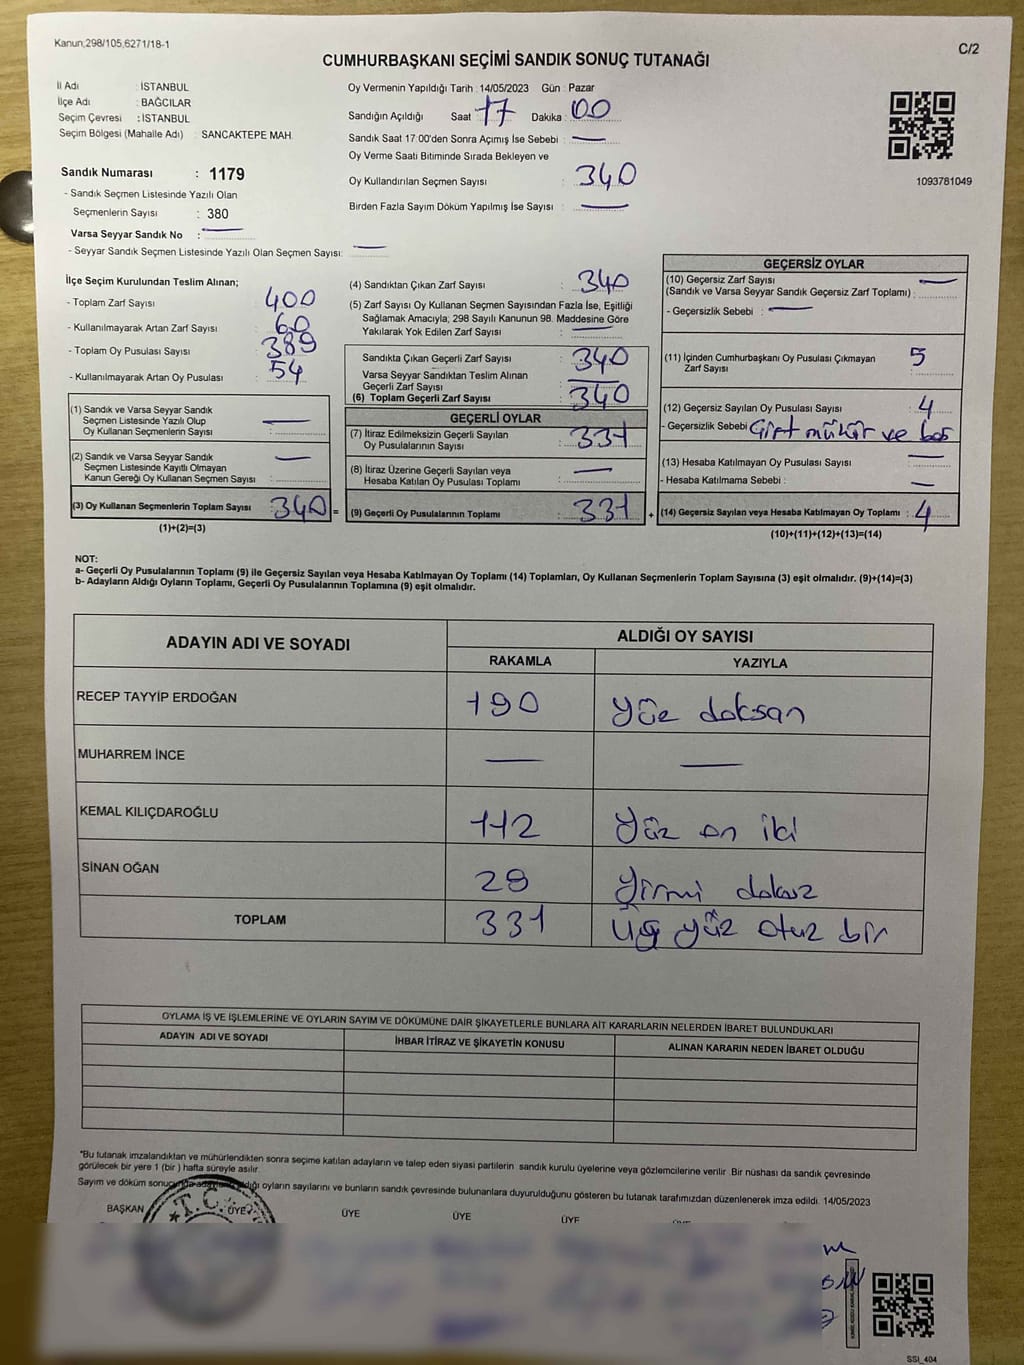 Kanun,298/105,6271/18-1
C/2
CUMHURBAŞKANI SEÇİMİ SANDIK SONUÇ TUTANAĞI
İl Adı : İSTANBUL
İlçe Adı : BAĞCILAR
Seçim Çevresi : İSTANBUL
Seçim Bölgesi (Mahalle Adı) : SANCAKTEPE MAH.
Sandık Numarası : 1179
- Sandık Seçmen Listesinde Yazılı Olan
Seçmenlerin Sayısı : 380
Varsa Seyyar Sandık No : —
- Seyyar Sandık Seçmen Listesinde Yazılı Olan Seçmen Sayısı: —
Oy Vermenin Yapıldığı Tarih : 14/05/2023 Gün : Pazar
Sandığın Açıldığı Saat 17 Dakika : 00
Sandık Saat 17:00'den Sonra Açımış İse Sebebi : —
Oy Verme Saati Bitiminde Sırada Bekleyen ve
Oy Kullandırılan Seçmen Sayısı : 340
Birden Fazla Sayım Döküm Yapılmış İse Sayısı : —
1093781049
İlçe Seçim Kurulundan Teslim Alınan;
- Toplam Zarf Sayısı : 400
- Kullanılmayarak Artan Zarf Sayısı : 60
- Toplam Oy Pusulası Sayısı : 389
- Kullanılmayarak Artan Oy Pusulası : 54
(1) Sandık ve Varsa Seyyar Sandık
Seçmen Listesinde Yazılı Olup
Oy Kullanan Seçmenlerin Sayısı : —
(2) Sandık ve Varsa Seyyar Sandık
Seçmen Listesinde Kayıtlı Olmayan
Kanun Gereği Oy Kullanan Seçmen Sayısı : —
(3) Oy Kullanan Seçmenlerin Toplam Sayısı : 340 =
(1)+(2)=(3)
(4) Sandıktan Çıkan Zarf Sayısı : 340
(5) Zarf Sayısı Oy Kullanan Seçmen Sayısından Fazla İse, Eşitliği
Sağlamak Amacıyla; 298 Sayılı Kanunun 98. Maddesine Göre
Yakılarak Yok Edilen Zarf Sayısı : —
Sandıkta Çıkan Geçerli Zarf Sayısı : 340
Varsa Seyyar Sandıktan Teslim Alınan
Geçerli Zarf Sayısı : —
(6) Toplam Geçerli Zarf Sayısı : 340
GEÇERLİ OYLAR
(7) İtiraz Edilmeksizin Geçerli Sayılan
Oy Pusulalarının Sayısı : 331
(8) İtiraz Üzerine Geçerli Sayılan veya
Hesaba Katılan Oy Pusulası Toplamı : —
(9) Geçerli Oy Pusulalarının Toplamı : 331 +
GEÇERSİZ OYLAR
(10) Geçersiz Zarf Sayısı —
(Sandık ve Varsa Seyyar Sandık Geçersiz Zarf Toplamı) :
- Geçersizlik Sebebi : —
(11) İçinden Cumhurbaşkanı Oy Pusulası Çıkmayan
Zarf Sayısı : 5
(12) Geçersiz Sayılan Oy Pusulası Sayısı : 4
- Geçersizlik Sebebi Çift mühür ve boş
(13) Hesaba Katılmayan Oy Pusulası Sayısı : —
- Hesaba Katılmama Sebebi : —
(14) Geçersiz Sayılan veya Hesaba Katılmayan Oy Toplamı : 4
(10)+(11)+(12)+(13)=(14)
NOT:
a- Geçerli Oy Pusulalarının Toplamı (9) ile Geçersiz Sayılan veya Hesaba Katılmayan Oy Toplamı (14) Toplamları, Oy Kullanan Seçmenlerin Toplam Sayısına (3) eşit olmalıdır. (9)+(14)=(3)
b- Adayların Aldığı Oyların Toplamı, Geçerli Oy Pusulalarının Toplamına (9) eşit olmalıdır.
ADAYIN ADI VE SOYADI ALDIĞI OY SAYISI
RAKAMLA YAZIYLA
RECEP TAYYİP ERDOĞAN 190 yüz doksan
MUHARREM İNCE — —
KEMAL KILIÇDAROĞLU 112 yüz on iki
SİNAN OĞAN 29 yirmi dokuz
TOPLAM 331 üç yüz otuz bir
OYLAMA İŞ VE İŞLEMLERİNE VE OYLARIN SAYIM VE DÖKÜMÜNE DAİR ŞİKAYETLERLE BUNLARA AİT KARARLARIN NELERDEN İBARET BULUNDUKLARI
ADAYIN ADI VE SOYADI İHBAR İTİRAZ VE ŞİKAYETİN KONUSU ALINAN KARARIN NEDEN İBARET OLDUĞU
*Bu tutanak imzalandıktan ve mühürlendikten sonra seçime katılan adayların ve talep eden siyasi partilerin sandık kurulu üyelerine veya gözlemcilerine verilir. Bir nüshası da sandık çevresinde
görülecek bir yere 1 (bir ) hafta süreyle asılır.
Sayım ve döküm sonucunda adayların aldığı oyların sayılarını ve bunların sandık çevresinde bulunanlara duyurulduğunu gösteren bu tutanak tarafımızdan düzenlenerek imza edildi. 14/05/2023
BAŞKAN ÜYE ÜYE ÜYE ÜYE
T.C.
SSI_404